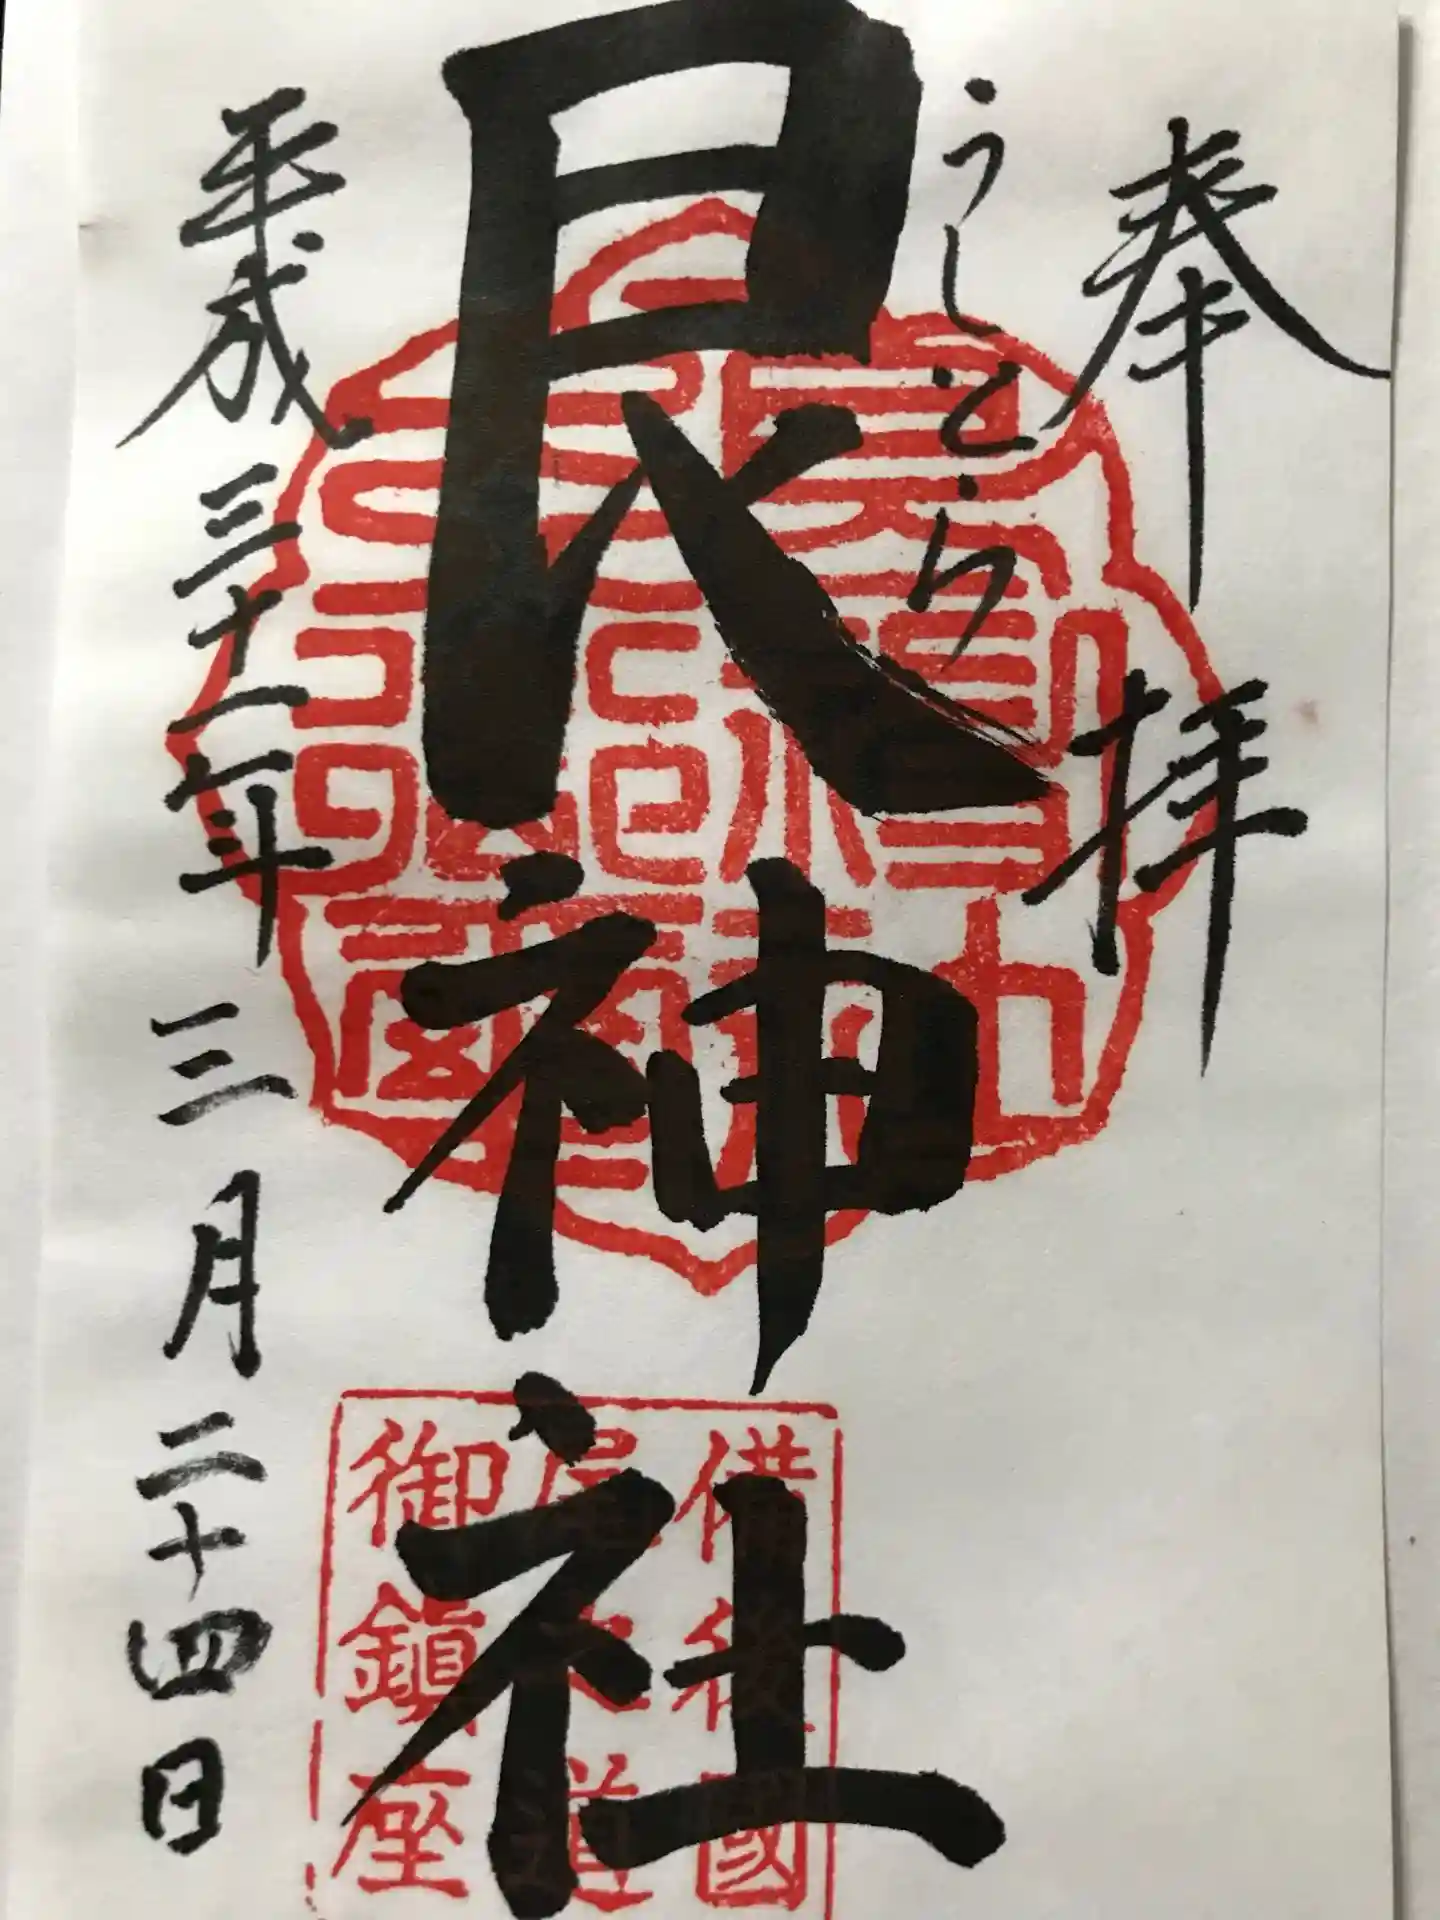 奉拝
うしとら
艮神社
平成三十一年三月二十四日
備後國
尾之道
御鎮座